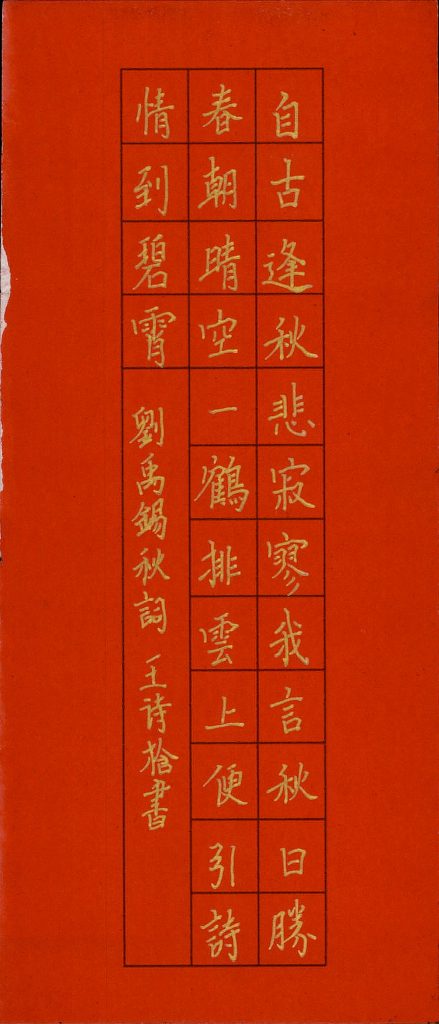 自古逢秋悲寂寥我言秋日勝
春朝晴空一鶴排雲上便引詩
情到碧霄
劉禹錫秋詞 王詩槍書